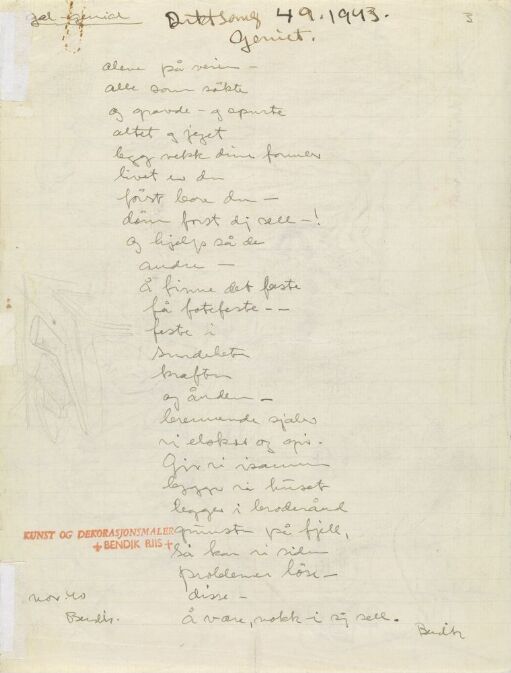 Jal-genial
Diktsamlg 49.1943.
3
Geniet.
alene på veien –
alle som søkte
og gravde – og spurte
altet og jeget
legg vekk dine former
livet er du
først bare du –
døm først dig sell – !
og hjelp så de
andre –
å finne det feste
få fotefeste --
feste i
Sundeheten
kraften
og ånden –
brennende sjeler
vi elsker og gir.
Gir vi isammen
bygge vi huset
bygger i broderånd
grunnst på fjell,
så kan vi siden
problemer løse –
disse –
å være, nokk – i sig sell.
KUNST OG DEKORASJONSMALER
BENDIK RIIS
nov. 40
Bendik.
Bendik